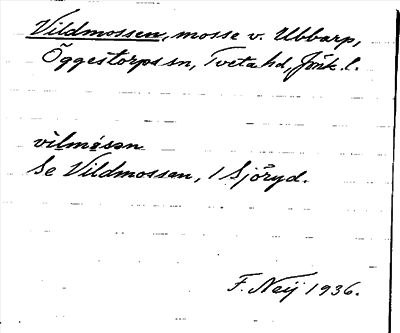 Vildmossen, mosse v. Ubbarp,
Öggestorps sn, Tveta hd, Jönk. l.
vìlmósən
Se Vildmossen, 1 Sjöryd.
F. Neij 1936.